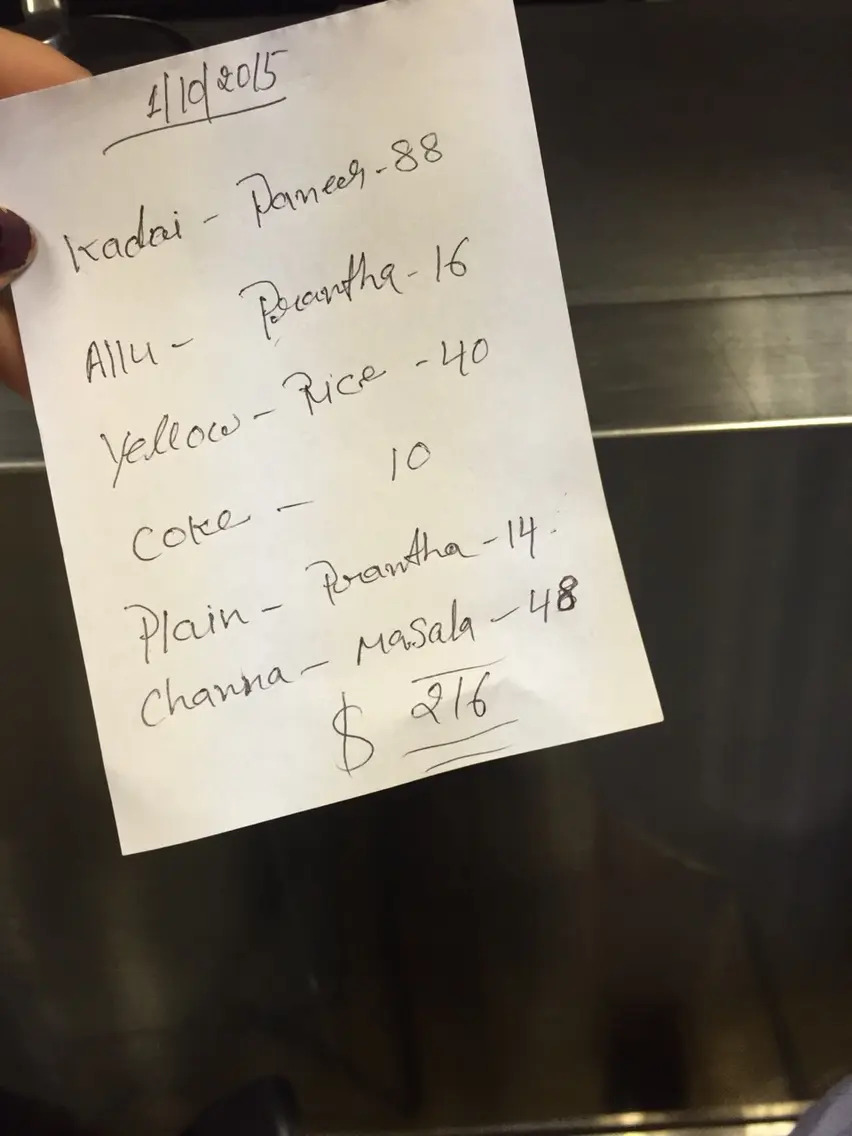 1/10/2015
Kadai - Paneer - 88
Allu - Prantha - 16
Yellow - Rice - 40
Coke - 10
Plain - Prantha - 14.
Channa - Masala - 48
$ 216